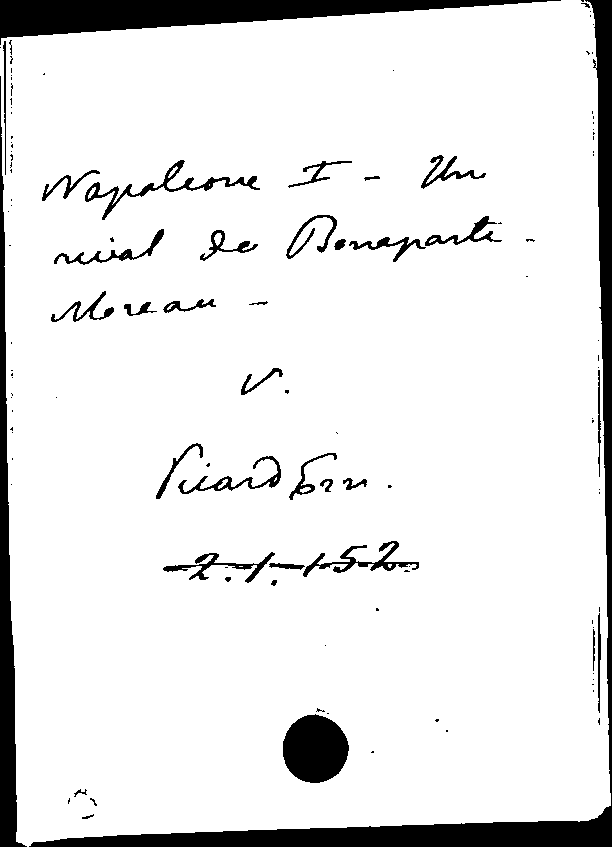 Napoleone I - Un
rival de Bonaparte -
Moreau -
V.
Picard Ern.
2.1.152